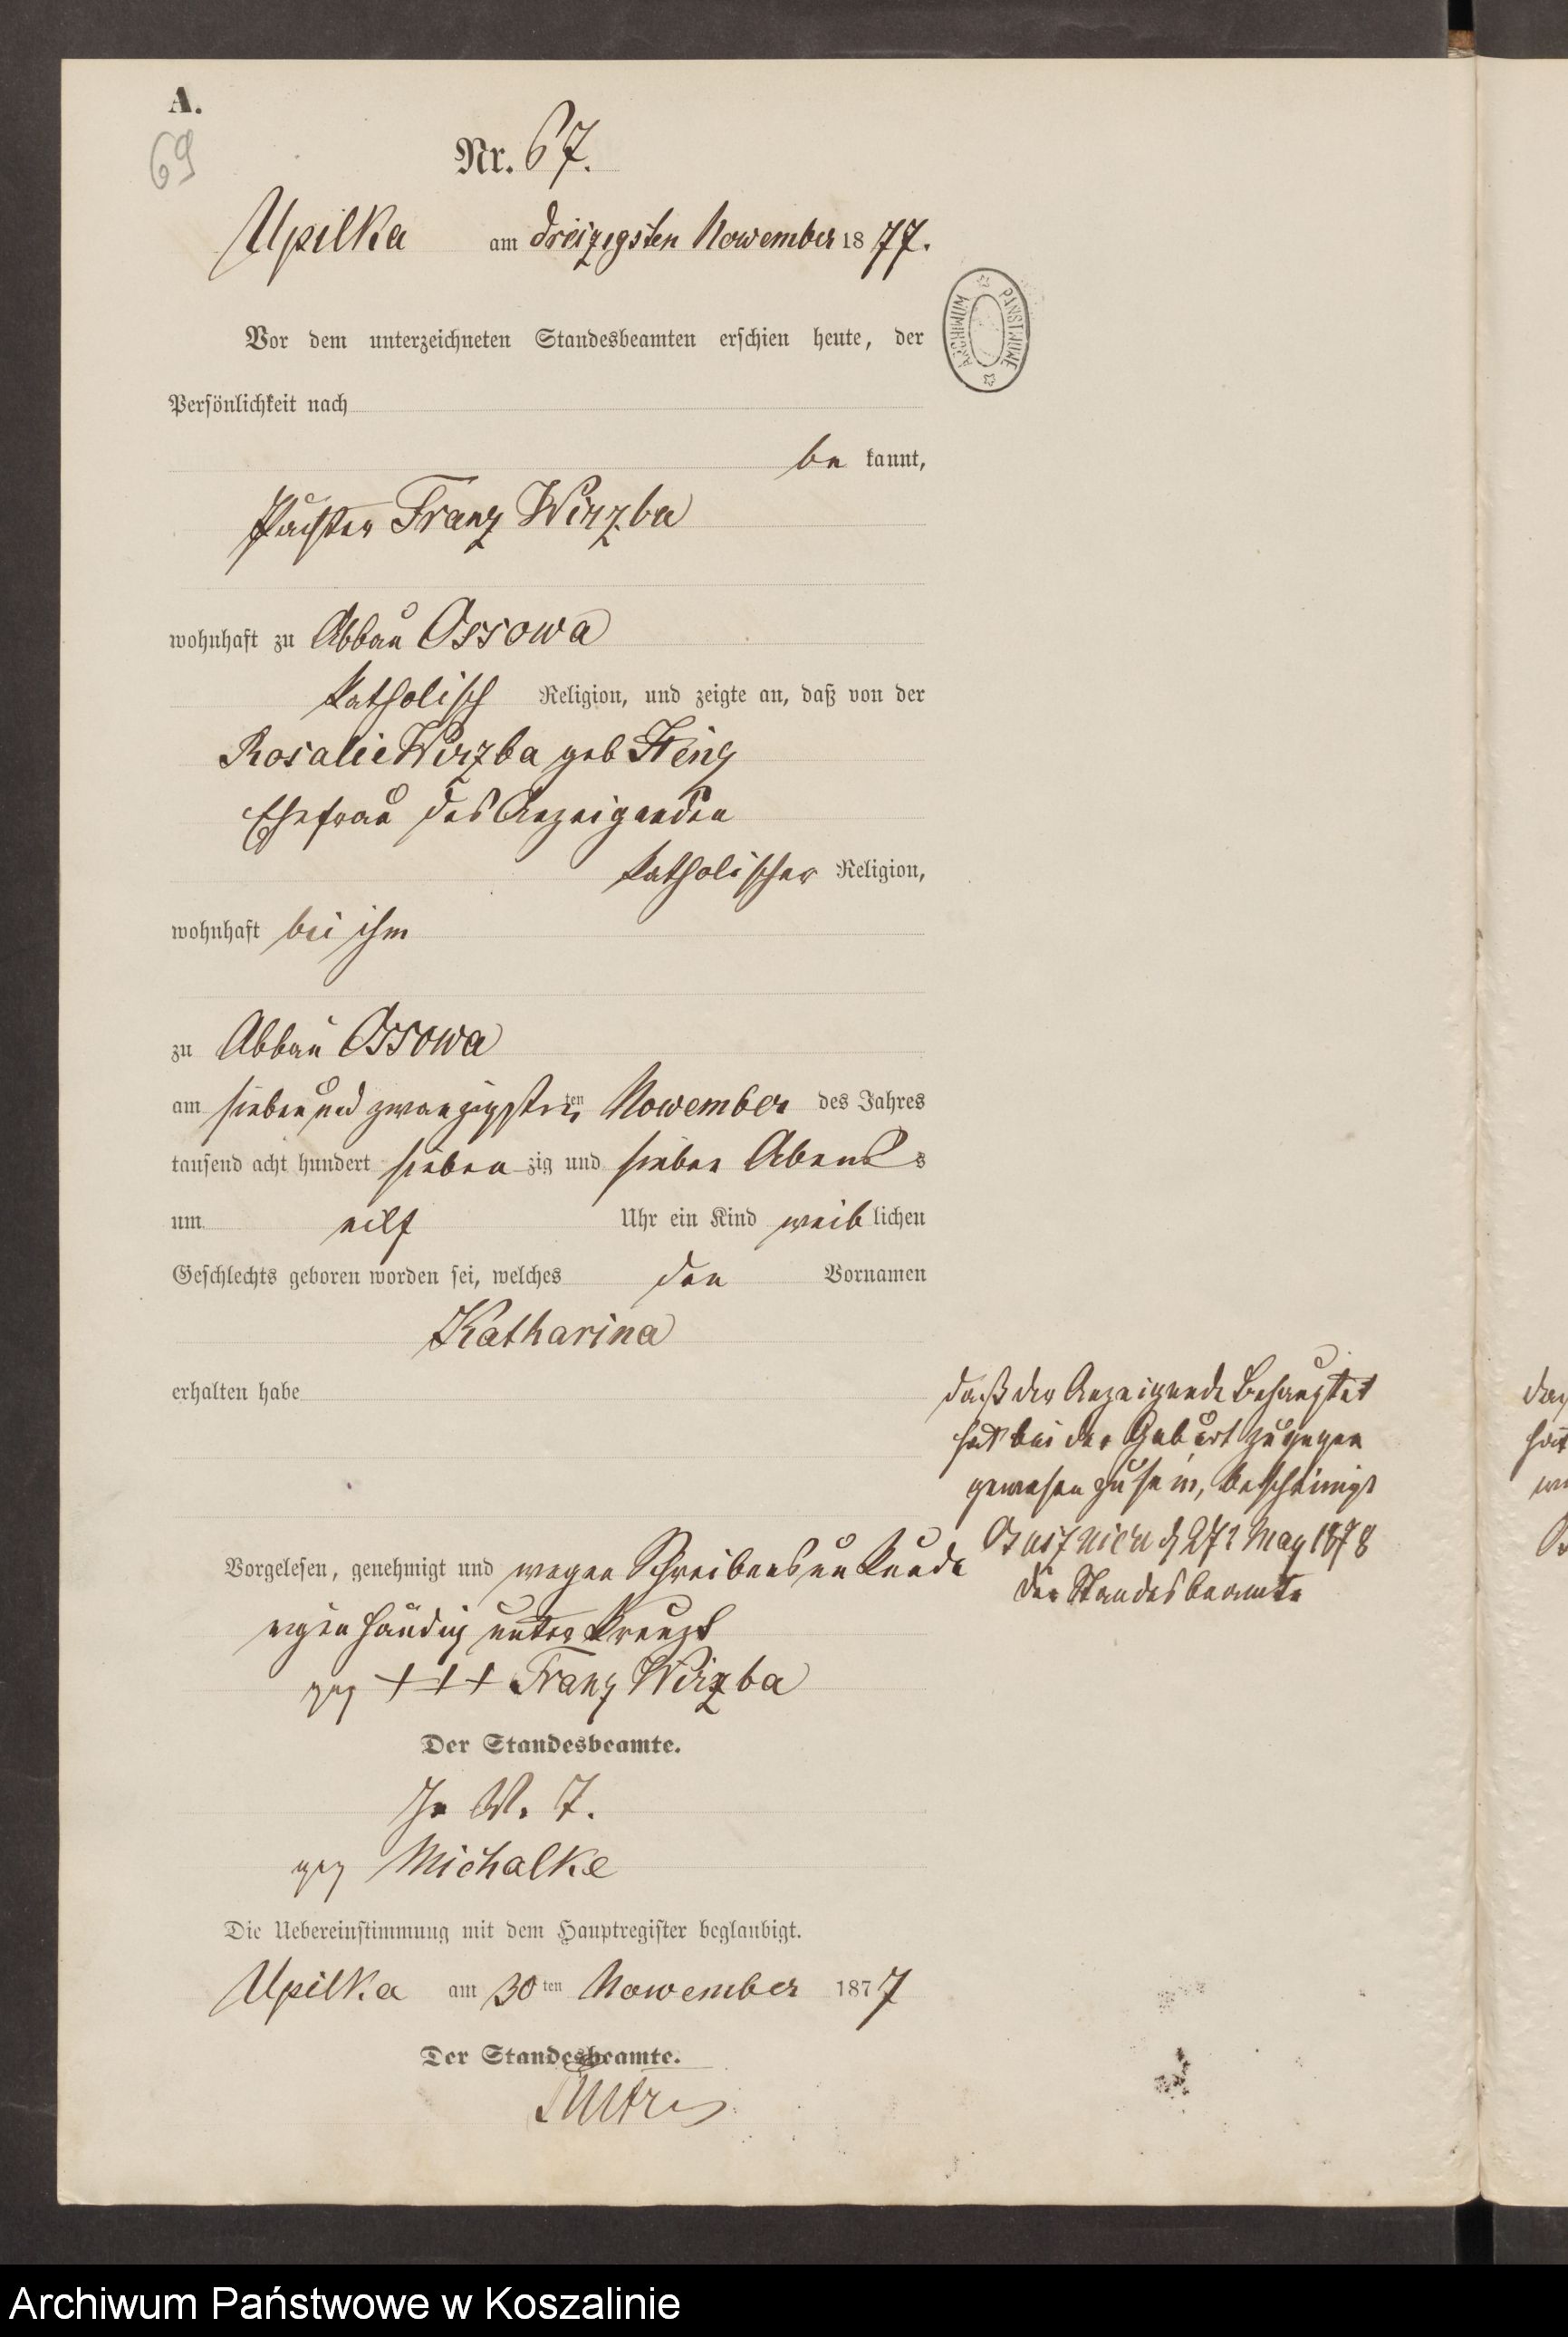 A.
69
Nr. 67.
Upilka am dreizigsten Nowember 1877.
Vor dem unterzeichneten Standesbeamten erschien heute, der
Persönlichkeit nach
be kannt,
Pächter Franz Wirzba
wohnhaft zu Abbau Ossowa
katholisch Religion, und zeigte an, daß von der
Rosalie Wirzba geb
Ehefrau des Anzeigenden
katholischer Religion,
wohnhaft bei ihm
zu Abbau Ossowa
am sieben und zwanzigsten ten Nowember des Jahres
tausend acht hundert sieben zig und sieben Abends
um eilf Uhr ein Kind weib lichen
Geschlechts geboren worden sei, welches den Vornamen
Katharina
erhalten habe
Vorgelesen, genehmigt und wegen Schreibensunkunde
eigenhändig unterkreuzt
gez +++ Franz Wirzba
Der Standesbeamte.
In V.
gez Michalke
Die Uebereinstimmung mit dem Hauptregister beglaubigt.
Upilka am 30 ten Nowember 1877
Der Standesbeamte.
daß der Anzeigende behauptet
hat bei der Geburt zugegen
gewesen zu sein, bescheinigt
May 1878
Der Standesbeamte
ARCHIWUM PAŃSTWOWE
Archiwum Państwowe w Koszalinie